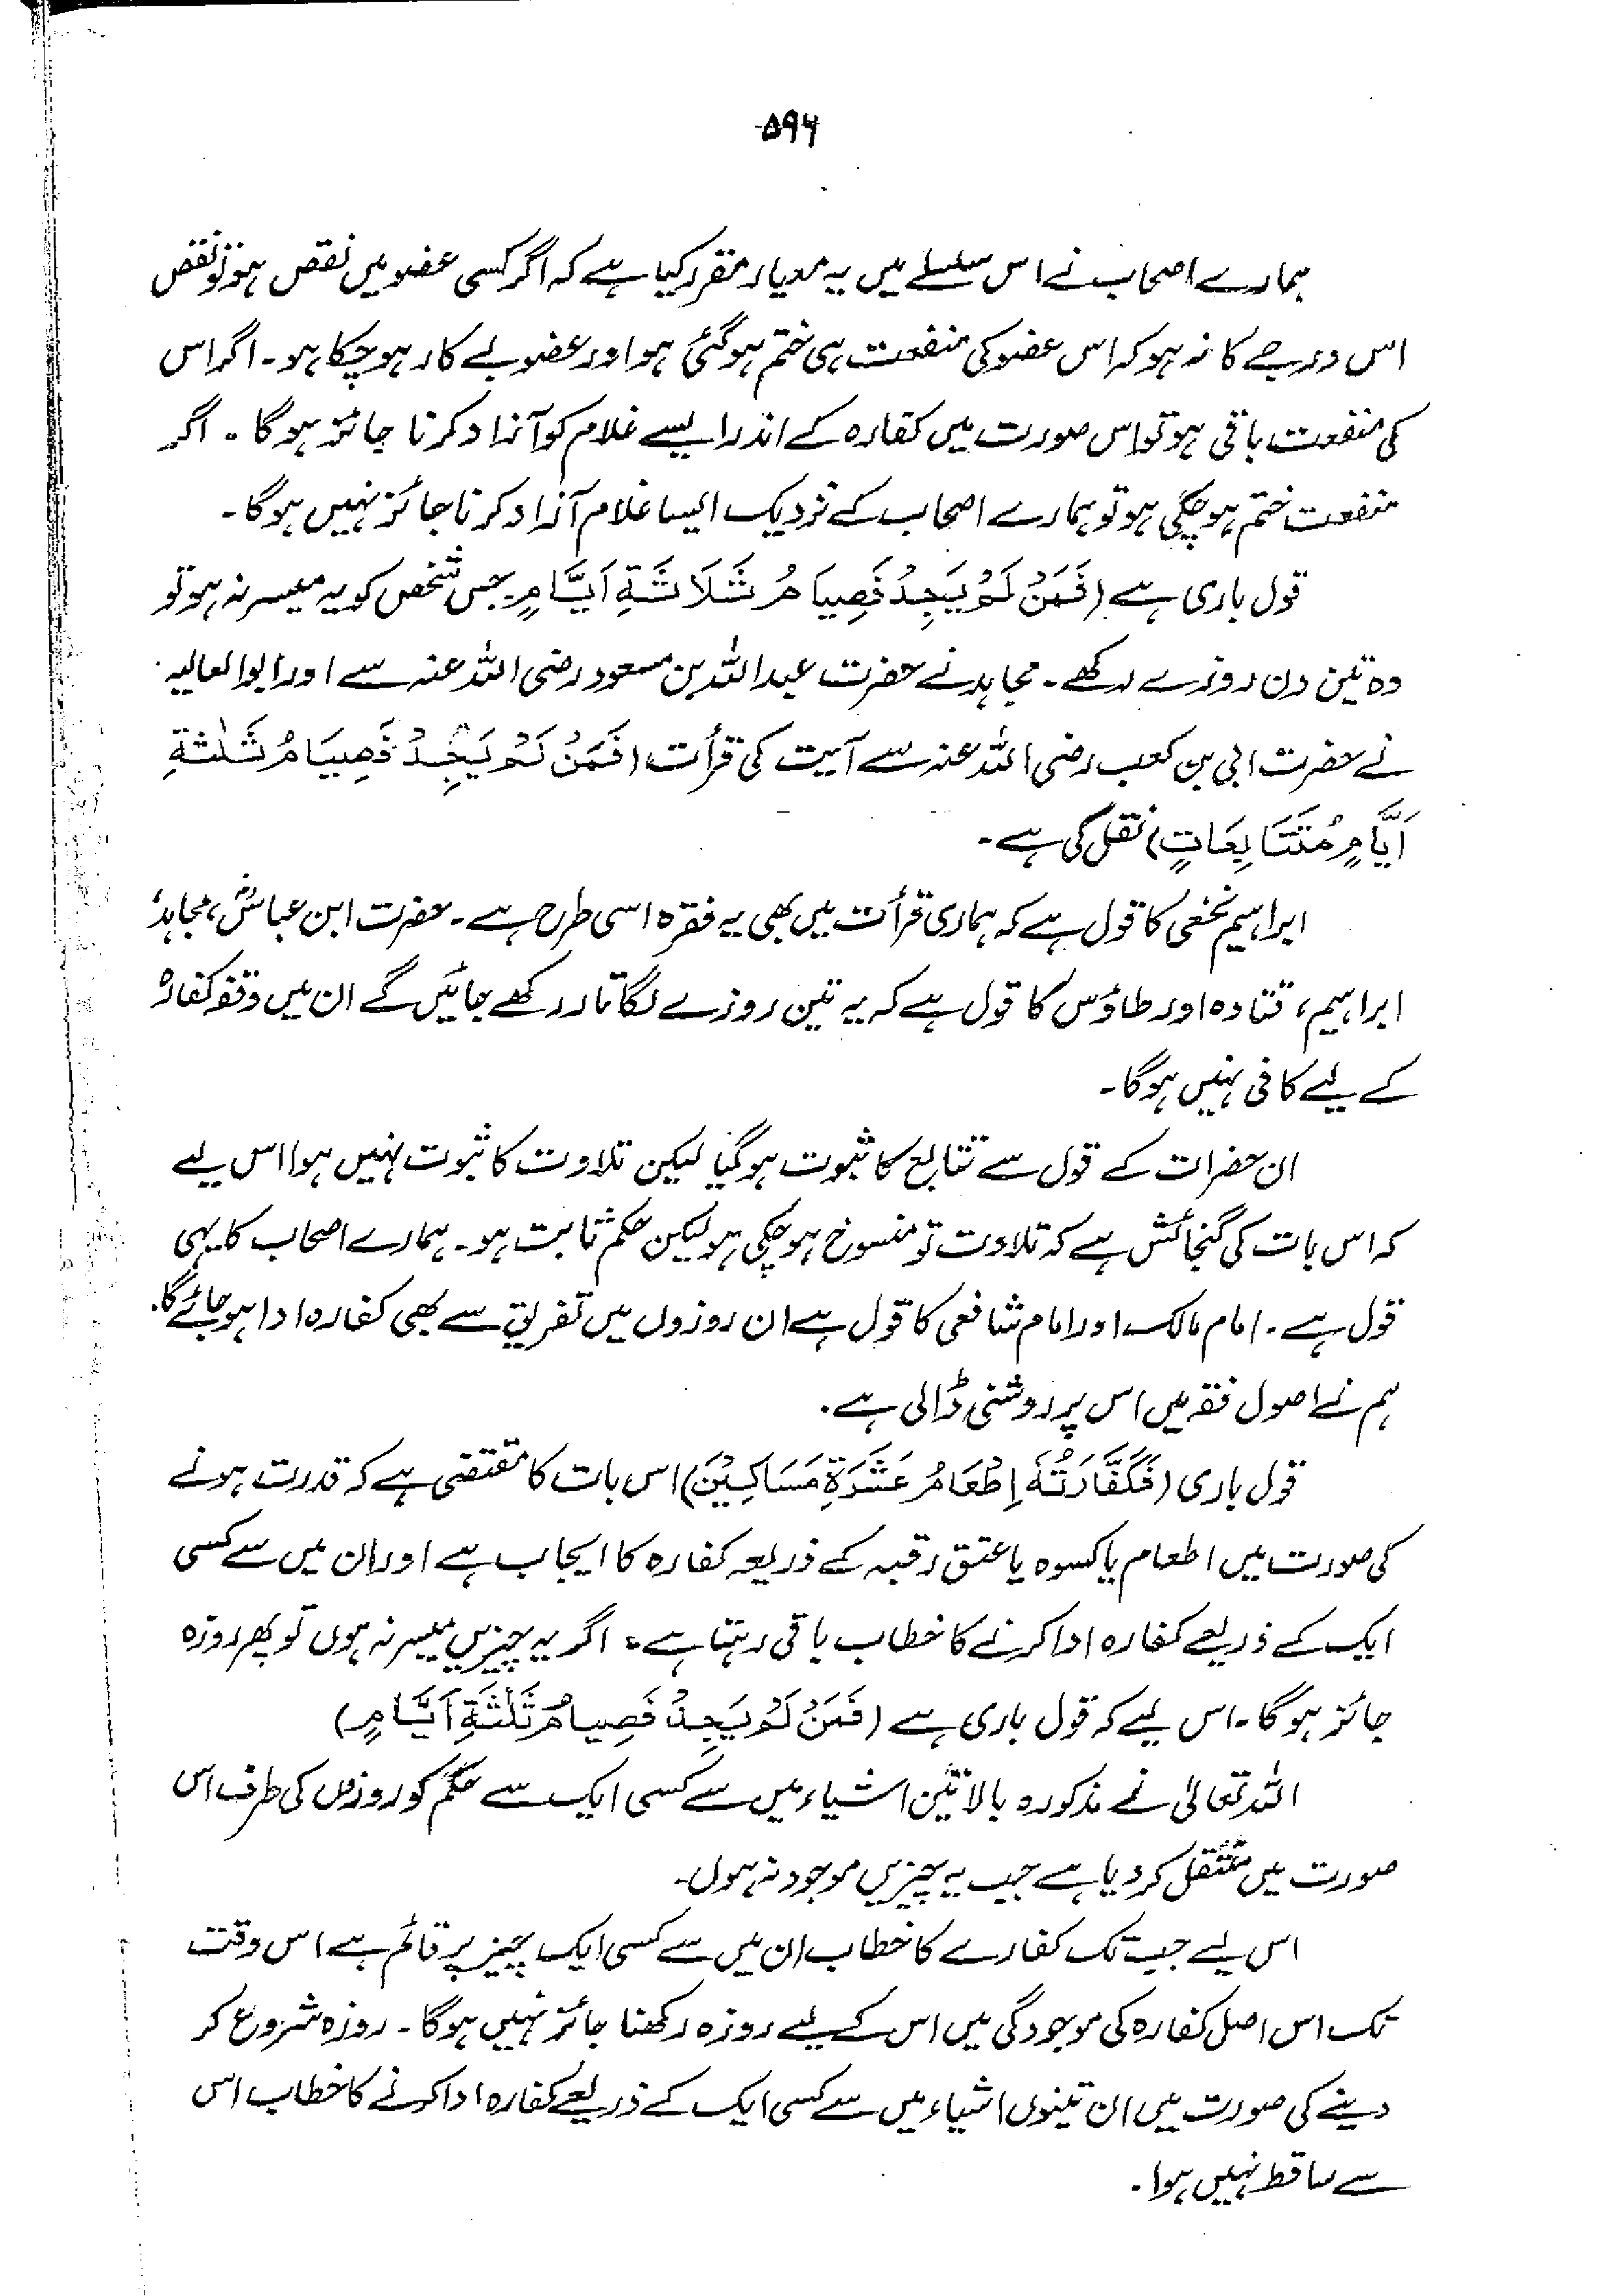 ۵۹۶
ہمارے اصحاب نے اس سلسلے میں یہ معیار مقرر کیا ہے کہ اگر کسی عضو میں نقص ہو تو نقص
اس درجے کا نہ ہو کہ اس عضو کی منفعت ہی ختم ہو گئی ہو اور عضو بے کار ہو چکا ہو۔ اگر اس
کی منفعت باقی ہو تو اس صورت میں کفارہ کے اندر ایسے غلام کو آزاد کرنا جائز ہو گا۔ اگر
منفعت ختم ہو چکی ہو تو ہمارے اصحاب کے نزدیک ایسا غلام آزاد کرنا جائز نہیں ہو گا۔
قول باری ہے (فَمَنْ لَمْ يَجِدْ فَصِيَامُ ثَلَاثَةِ اَيَّامٍ۔ جس شخص کو یہ میسر نہ ہو تو
وہ تین دن روزے رکھے۔ مجاہد نے حضرت عبداللہ بن مسعود رضی اللہ عنہ سے اور ابوالعالیہ
نے حضرت ابی بن کعب رضی اللہ عنہ سے آیت کی قرأت (فَمَنْ لَمْ يَجِدْ فَصِيَامُ ثَلٰثَةِ
اَيَّامٍ مُتَتَابِعَاتٍ) نقل کی ہے۔
ابراہیم نخعی کا قول ہے کہ ہماری قرأت میں بھی یہ فقرہ اسی طرح ہے۔ حضرت ابن عباسؓ، مجاہد،
ابراہیم، قتادہ اور طاؤس کا قول ہے کہ یہ تین روزے لگاتار رکھے جائیں گے ان میں وقفہ کفارہ
کے لیے کافی نہیں ہو گا۔
ان حضرات کے قول سے تتابع کا ثبوت ہو گیا لیکن تلاوت کا ثبوت نہیں ہوا اس لیے
کہ اس بات کی گنجائش ہے کہ تلاوت تو منسوخ ہو چکی ہو لیکن حکم ثابت ہو۔ ہمارے اصحاب کا یہی
قول ہے۔ امام مالک اور امام شافعی کا قول ہے ان روزوں میں تفریق سے بھی کفارہ ادا ہو جائے گا۔
ہم نے اصول فقہ میں اس پر روشنی ڈالی ہے۔
قول باری (فَكَفَّارَتُهٗ اِطْعَامُ عَشَرَةِ مَسَاكِيْنَ) اس بات کا مقتضی ہے کہ قدرت ہونے
کی صورت میں اطعام یا کسوہ یا عتق رقبہ کے ذریعہ کفارہ کا ایجاب ہے اور ان میں سے کسی
ایک کے ذریعے کفارہ ادا کرنے کا خطاب باقی رہتا ہے۔ اگر یہ چیزیں میسر نہ ہوں تو پھر روزہ
جائز ہو گا۔ اس لیے کہ قول باری ہے (فَمَنْ لَمْ يَجِدْ فَصِيامُ ثَلٰثَةِ اَيَّامٍ)
اللہ تعالیٰ نے مذکورہ بالا تین اشیاء میں سے کسی ایک سے حکم کو روزوں کی طرف اس
صورت میں منتقل کر دیا ہے جب یہ چیزیں موجود نہ ہوں۔
اس لیے جب تک کفارے کا خطاب ان میں سے کسی ایک چیز پر قائم ہے اس وقت
تک اس اصل کفارہ کی موجودگی میں اس کے لیے روزہ رکھنا جائز نہیں ہو گا۔ روزہ شروع کر
دینے کی صورت میں ان تینوں اشیاء میں سے کسی ایک کے ذریعے کفارہ ادا کرنے کا خطاب اس
سے ساقط نہیں ہوا۔